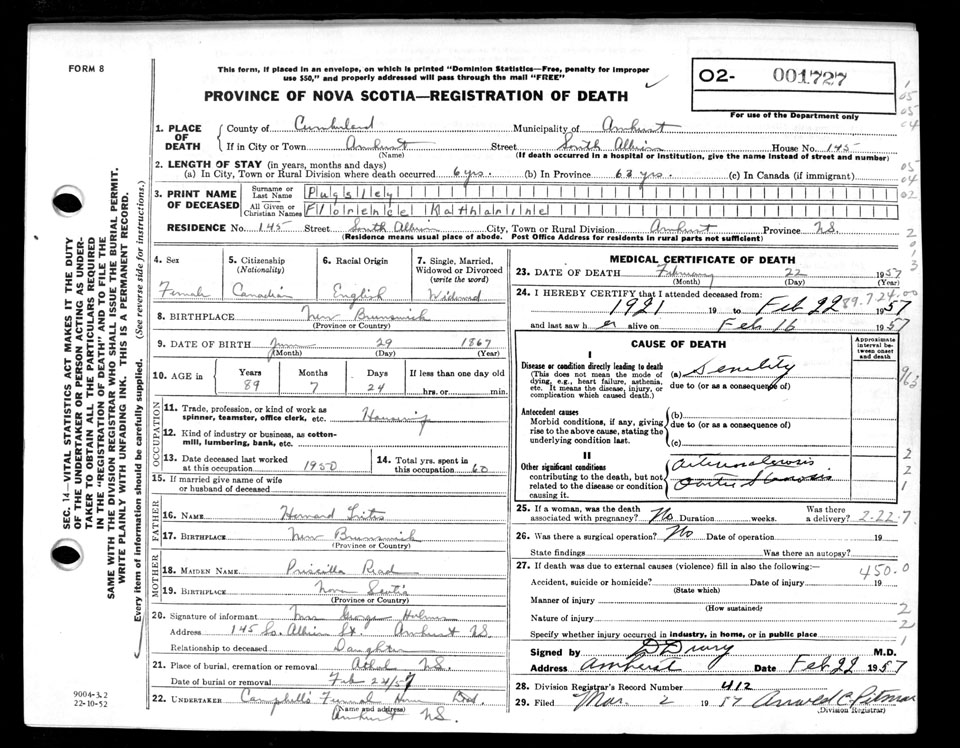 FORM 8
This form, if placed in an envelope, on which is printed "Dominion Statistics—Free, penalty for improper
use $50," and properly addressed will pass through the mail "FREE"
PROVINCE OF NOVA SCOTIA—REGISTRATION OF DEATH
02- 001727
For use of the Department only
1. PLACE OF DEATH
County of Cumberland Municipality of Amherst
If in City or Town Amherst Street South Albion House No. 145
(Name) (If death occurred in a hospital or institution, give the name instead of street and number)
2. LENGTH OF STAY (in years, months and days)
(a) In City, Town or Rural Division where death occurred 6 yrs. (b) In Province 63 yrs. (c) In Canada (if immigrant)
3. PRINT NAME OF DECEASED
Surname or Last Name Pugsley
All Given or Christian Names Florence Katharine
RESIDENCE No. 145 Street South Albion City, Town or Rural Division Amherst Province N.S.
(Residence means usual place of abode. Post Office Address for residents in rural parts not sufficient)
4. Sex
Female
5. Citizenship
(Nationality)
Canadian
6. Racial Origin
English
7. Single, Married,
Widowed or Divorced
(write the word)
Widowed
8. BIRTHPLACE New Brunswick
(Province or Country)
9. DATE OF BIRTH June 29 1867
(Month) (Day) (Year)
10. AGE in Years Months Days If less than one day old
89 7 24 hrs. or min.
OCCUPATION
11. Trade, profession, or kind of work as
spinner, teamster, office clerk, etc.
12. Kind of industry or business, as cotton-
mill, lumbering, bank, etc.
13. Date deceased last worked
at this occupation 1950
14. Total yrs. spent in
this occupation 60
15. If married give name of wife
or husband of deceased
FATHER
16. NAME Howard
17. BIRTHPLACE New Brunswick
(Province or Country)
MOTHER
18. MAIDEN NAME Priscilla Read
19. BIRTHPLACE Nova Scotia
(Province or Country)
20. Signature of informant Mrs George
Address 145 So. Albion St. Amherst N.S.
Relationship to deceased Daughter
21. Place of burial, cremation or removal Athol N.S.
Date of burial or removal Feb 24/57
22. UNDERTAKER Campbell's Funeral Home
(Name and address)
Amherst N.S.
MEDICAL CERTIFICATE OF DEATH
23. DATE OF DEATH February 22 1957
(Month) (Day) (Year)
24. I HEREBY CERTIFY that I attended deceased from:
1921 19 to Feb 22 1957
89.724.00
and last saw her alive on Feb 16 1957
CAUSE OF DEATH
Approximate
interval be-
tween onset
and death
I
Disease or condition directly leading to death
(This does not mean the mode of
dying, e.g., heart failure, asthenia,
etc. It means the disease, injury, or
complication which caused death.)
(a) Senility
due to (or as a consequence of)
Antecedent causes
Morbid conditions, if any, giving
rise to the above cause, stating the
underlying condition last.
(b)
due to (or as a consequence of)
(c)
II
Other significant conditions
contributing to the death, but not
related to the disease or condition
causing it.
Arteriosclerosis
Aortic Stenosis
25. If a woman, was the death
associated with pregnancy? No Duration weeks. Was there
a delivery? 2-22.7
26. Was there a surgical operation? No Date of operation 19
State findings Was there an autopsy?
27. If death was due to external causes (violence) fill in also the following:—
450.0
Accident, suicide or homicide? Date of injury 19
(State which)
Manner of injury
(How sustained)
Nature of injury
Specify whether injury occurred in industry, in home, or in public place
Signed by D Drury M.D.
Address Amherst Date Feb 22 1957
28. Division Registrar's Record Number 412
29. Filed Mar. 2 1957 Arnold C.
(Division Registrar)
SEC. 14—VITAL STATISTICS ACT MAKES IT THE DUTY
OF THE UNDERTAKER OR PERSON ACTING AS UNDER-
TAKER TO OBTAIN ALL THE PARTICULARS REQUIRED
IN THE "REGISTRATION OF DEATH" AND TO FILE THE
SAME WITH THE DIVISION REGISTRAR WHO SHALL ISSUE THE BURIAL PERMIT.
WRITE PLAINLY WITH UNFADING INK. THIS IS A PERMANENT RECORD.
Every item of information should be carefully supplied. (See reverse side for instructions.)
9004-3.2
22-10-52